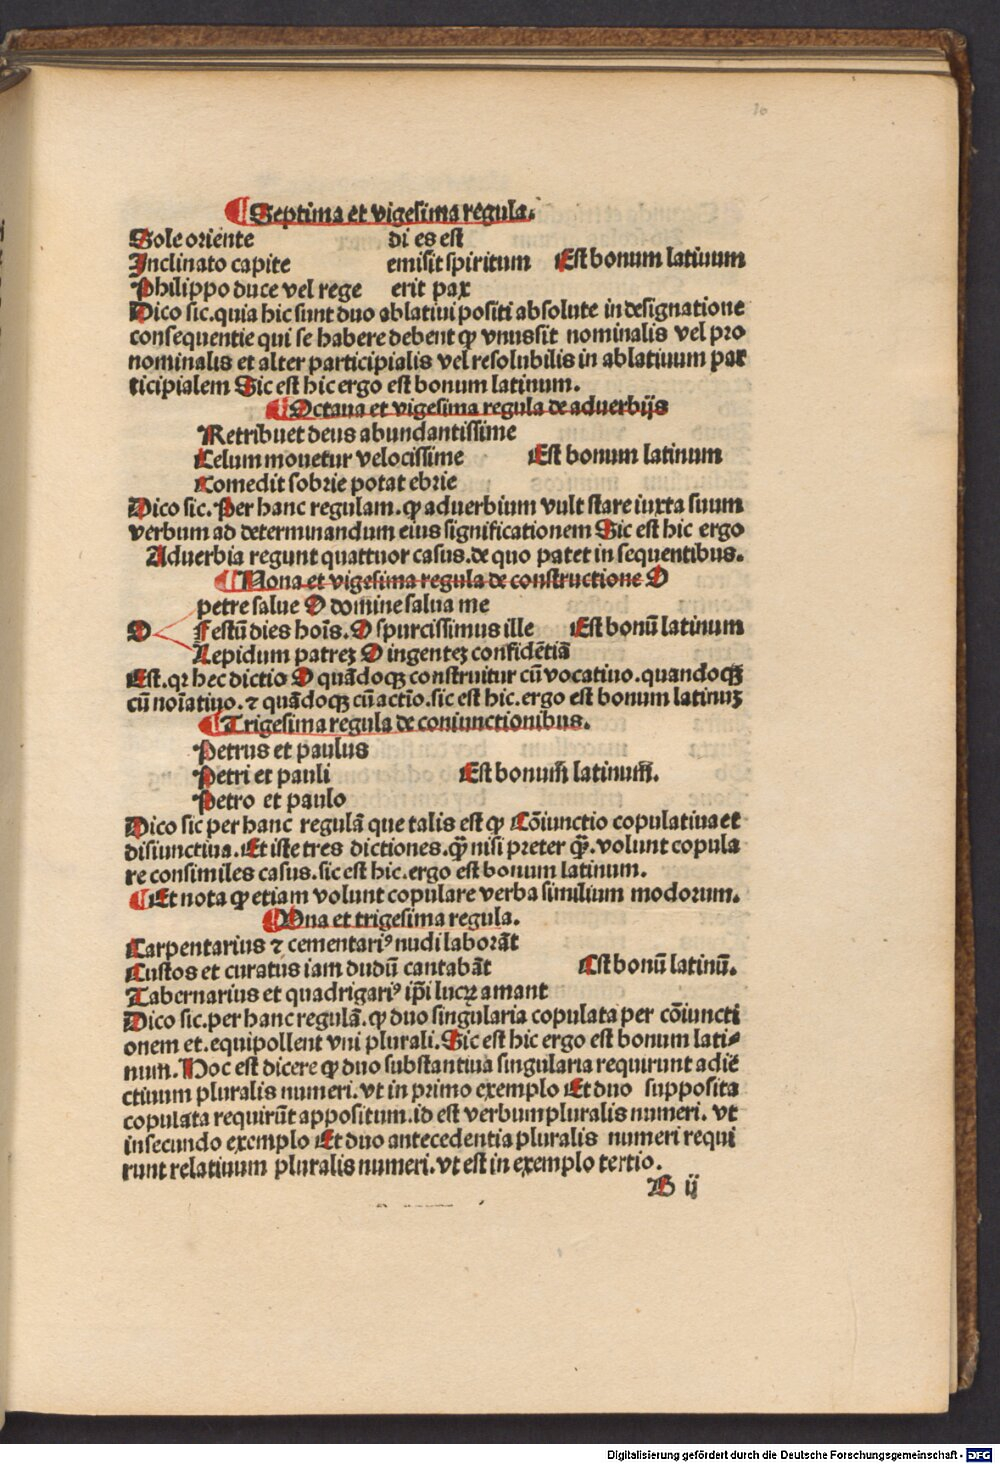 10
¶ Septima et vigesima regula.
Sole oriente di es est
Inclinato capite emisit spiritum Est bonum latiuum
Philippo duce vel rege erit pax
Dico sic. quia hic sunt duo ablatiui positi absolute in designatione
consequentie qui se habere debent ꝙ vnus sit nominalis vel pro
nominalis et alter participialis vel resolubilis in ablatiuum par
ticipialem Sic est hic ergo est bonum latinum.
¶ Octaua et vigesima regula de aduerbijs
Retribuet deus abundantissime
Celum mouetur velocissime Est bonum latinum
Comedit sobrie potat ebrie
Dico sic. Per hanc regulam. ꝙ aduerbium vult stare iuxta suum
verbum ad determinandum eius significationem Sic est hic ergo
Aduerbia regunt quattuor casus. de quo patet in sequentibus.
¶ Nona et vigesima regula de constructione O
petre salue O domine salua me
O Festū dies hoīs. O spurcissimus ille Est bonū latinum
Lepidum patreꝫ O ingenteꝫ confidētiā
Est. qꝛ hec dictio O quādoqꝫ construitur cū vocatiuo. quandoqꝫ
cū noīatiuo. ⁊ quādoqꝫ cū actīo. sic est hic. ergo est bonum latinuꝫ
¶ Trigesima regula de coniunctionibus.
Petrus et paulus
Petri et pauli Est bonum̄ latinum̄.
Petro et paulo
Dico sic per hanc regulā que talis est ꝙ Cōiunctio copulatiua et
disiunctiua. Et iste tres dictiones. qm̄ nisi preter qm̄. volunt copula
re consimiles casus. sic est hic. ergo est bonum latinum.
¶ Et nota ꝙ etiam volunt copulare verba similium modorum.
¶ Una et trigesima regula.
Carpentarius ⁊ cementariꝰ nudi laborāt
Custos et curatus iam dudū cantabāt Est bonū latinū.
Tabernarius et quadrigariꝰ ip̄i lucꝝ amant
Dico sic. per hanc regulā. ꝙ duo singularia copulata per cōiuncti
onem et. equipollent vni plurali. Sic est hic ergo est bonum lati⸗
num. Hoc est dicere ꝙ duo substantiua singularia requirunt adiē
ctiuum pluralis numeri. vt in primo exemplo Et duo supposita
copulata requirūt appositum. id est verbum pluralis numeri. vt
in secundo exemplo Et duo antecedentia pluralis numeri requi
runt relatiuum pluralis numeri. vt est in exemplo tertio.
B ij
Digitalisierung gefördert durch die Deutsche Forschungsgemeinschaft - DFG